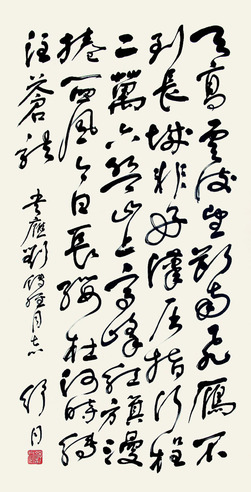 天高雲淡望斷南飛雁不
到長城非好漢屈指行程
二萬六盤山上高峰紅旗漫
捲西風今日長纓在手何時縛
住蒼龍
舒同